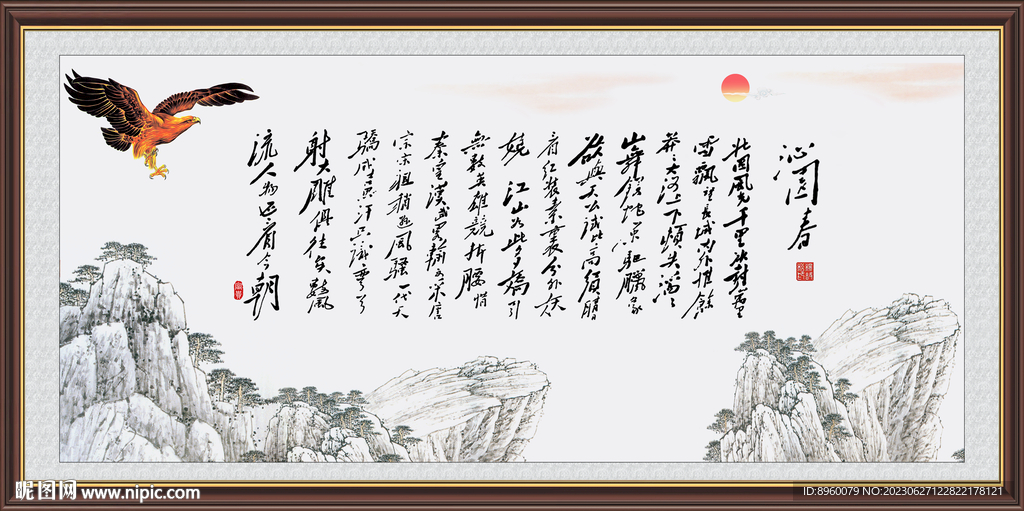 沁园春
北国風光千里冰封万里
雪飘望長城内外惟馀
莽々大河上下顿失滔々
山舞银蛇原驰腊象
欲與天公试比高须晴日
看红装素裹分外妖
娆 江山如此多嬌引
無數英雄競折腰惜
秦皇漢武略輸文采唐
宗宋祖稍逊風騷一代天
骄成吉思汗只識弯弓
射大雕俱往矣數風
流人物还看今朝
昵图网 www.nipic.com
ID:8960079 NO:20230627122822178121